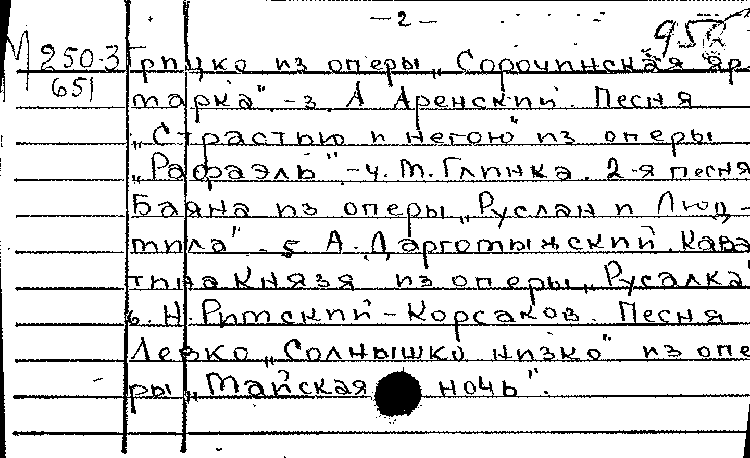 – 2 –
952
М 250-3
651
Грицко из оперы „Сорочинская яр
марка" .-3. А Аренский. Песня
„Страстью и негою" из оперы
„Рафаэль" -4. М. Глинка. 2-я песня
Баяна из оперы „Руслан и Люд-
мила" - 5 А. Даргомыжский. Кава
тина Князя из оперы „Русалка"
6. Н. Римский-Корсаков. Песня
Левко „Солнышко низко" из опе
ры „Майская ночь".